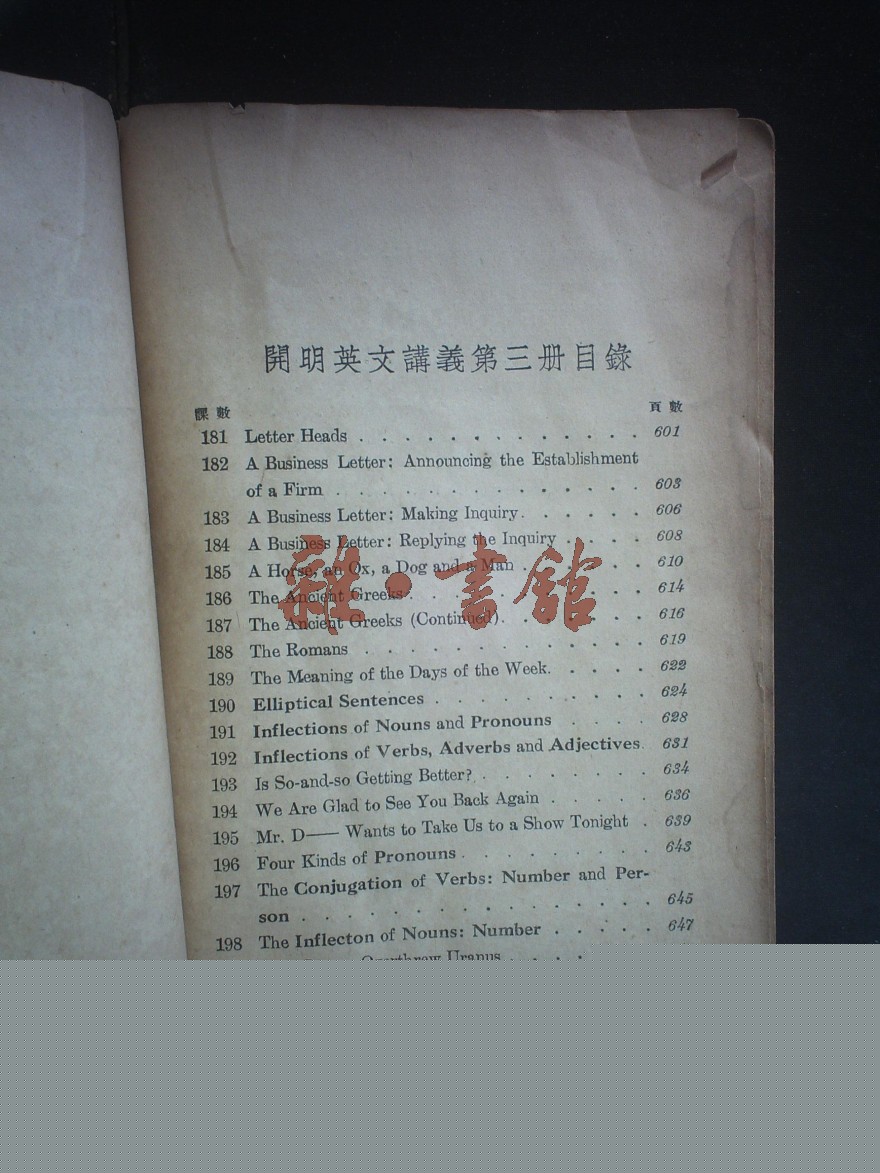 開明英文講義第三册目錄
課數 頁數
181 Letter Heads . . . . . . . . . . . . . 601
182 A Business Letter: Announcing the Establishment
of a Firm . . . . . . . . . . . . . 603
183 A Business Letter: Making Inquiry. . . . . . 606
184 A Business Letter: Replying the Inquiry . . . . 608
185 A Horse, an Ox, a Dog and a Man . . . . . . 610
186 The Ancient Greeks . . . . . . . . . . 614
187 The Ancient Greeks (Continued) . . . . . . 616
188 The Romans . . . . . . . . . . . . 619
189 The Meaning of the Days of the Week. . . . . 622
190 Elliptical Sentences . . . . . . . . . . 624
191 Inflections of Nouns and Pronouns . . . . 628
192 Inflections of Verbs, Adverbs and Adjectives. 631
193 Is So-and-so Getting Better? . . . . . . . . 634
194 We Are Glad to See You Back Again . . . . . 636
195 Mr. D—— Wants to Take Us to a Show Tonight . 639
196 Four Kinds of Pronouns . . . . . . . . 643
197 The Conjugation of Verbs: Number and Per-
son . . . . . . . . . . . . . . . 645
198 The Inflecton of Nouns: Number . . . . . 647
Overthrew Uranus . . . .
雜·書館